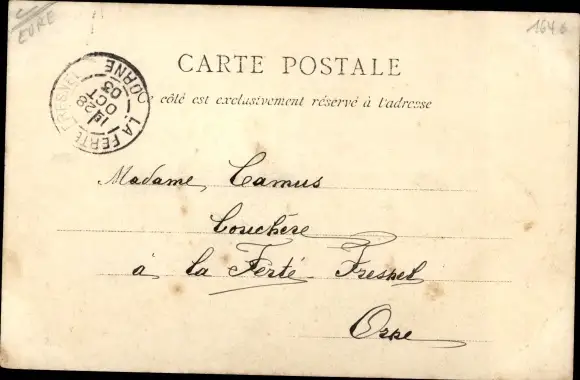 EURE
1646
CARTE POSTALE
Ce côté est exclusivement réservé à l'adresse
LA FERTE FRESNEL
ORNE
28
OCT
03
Madame Camus
Bouchère
à la Ferté-Fresnel
Orne